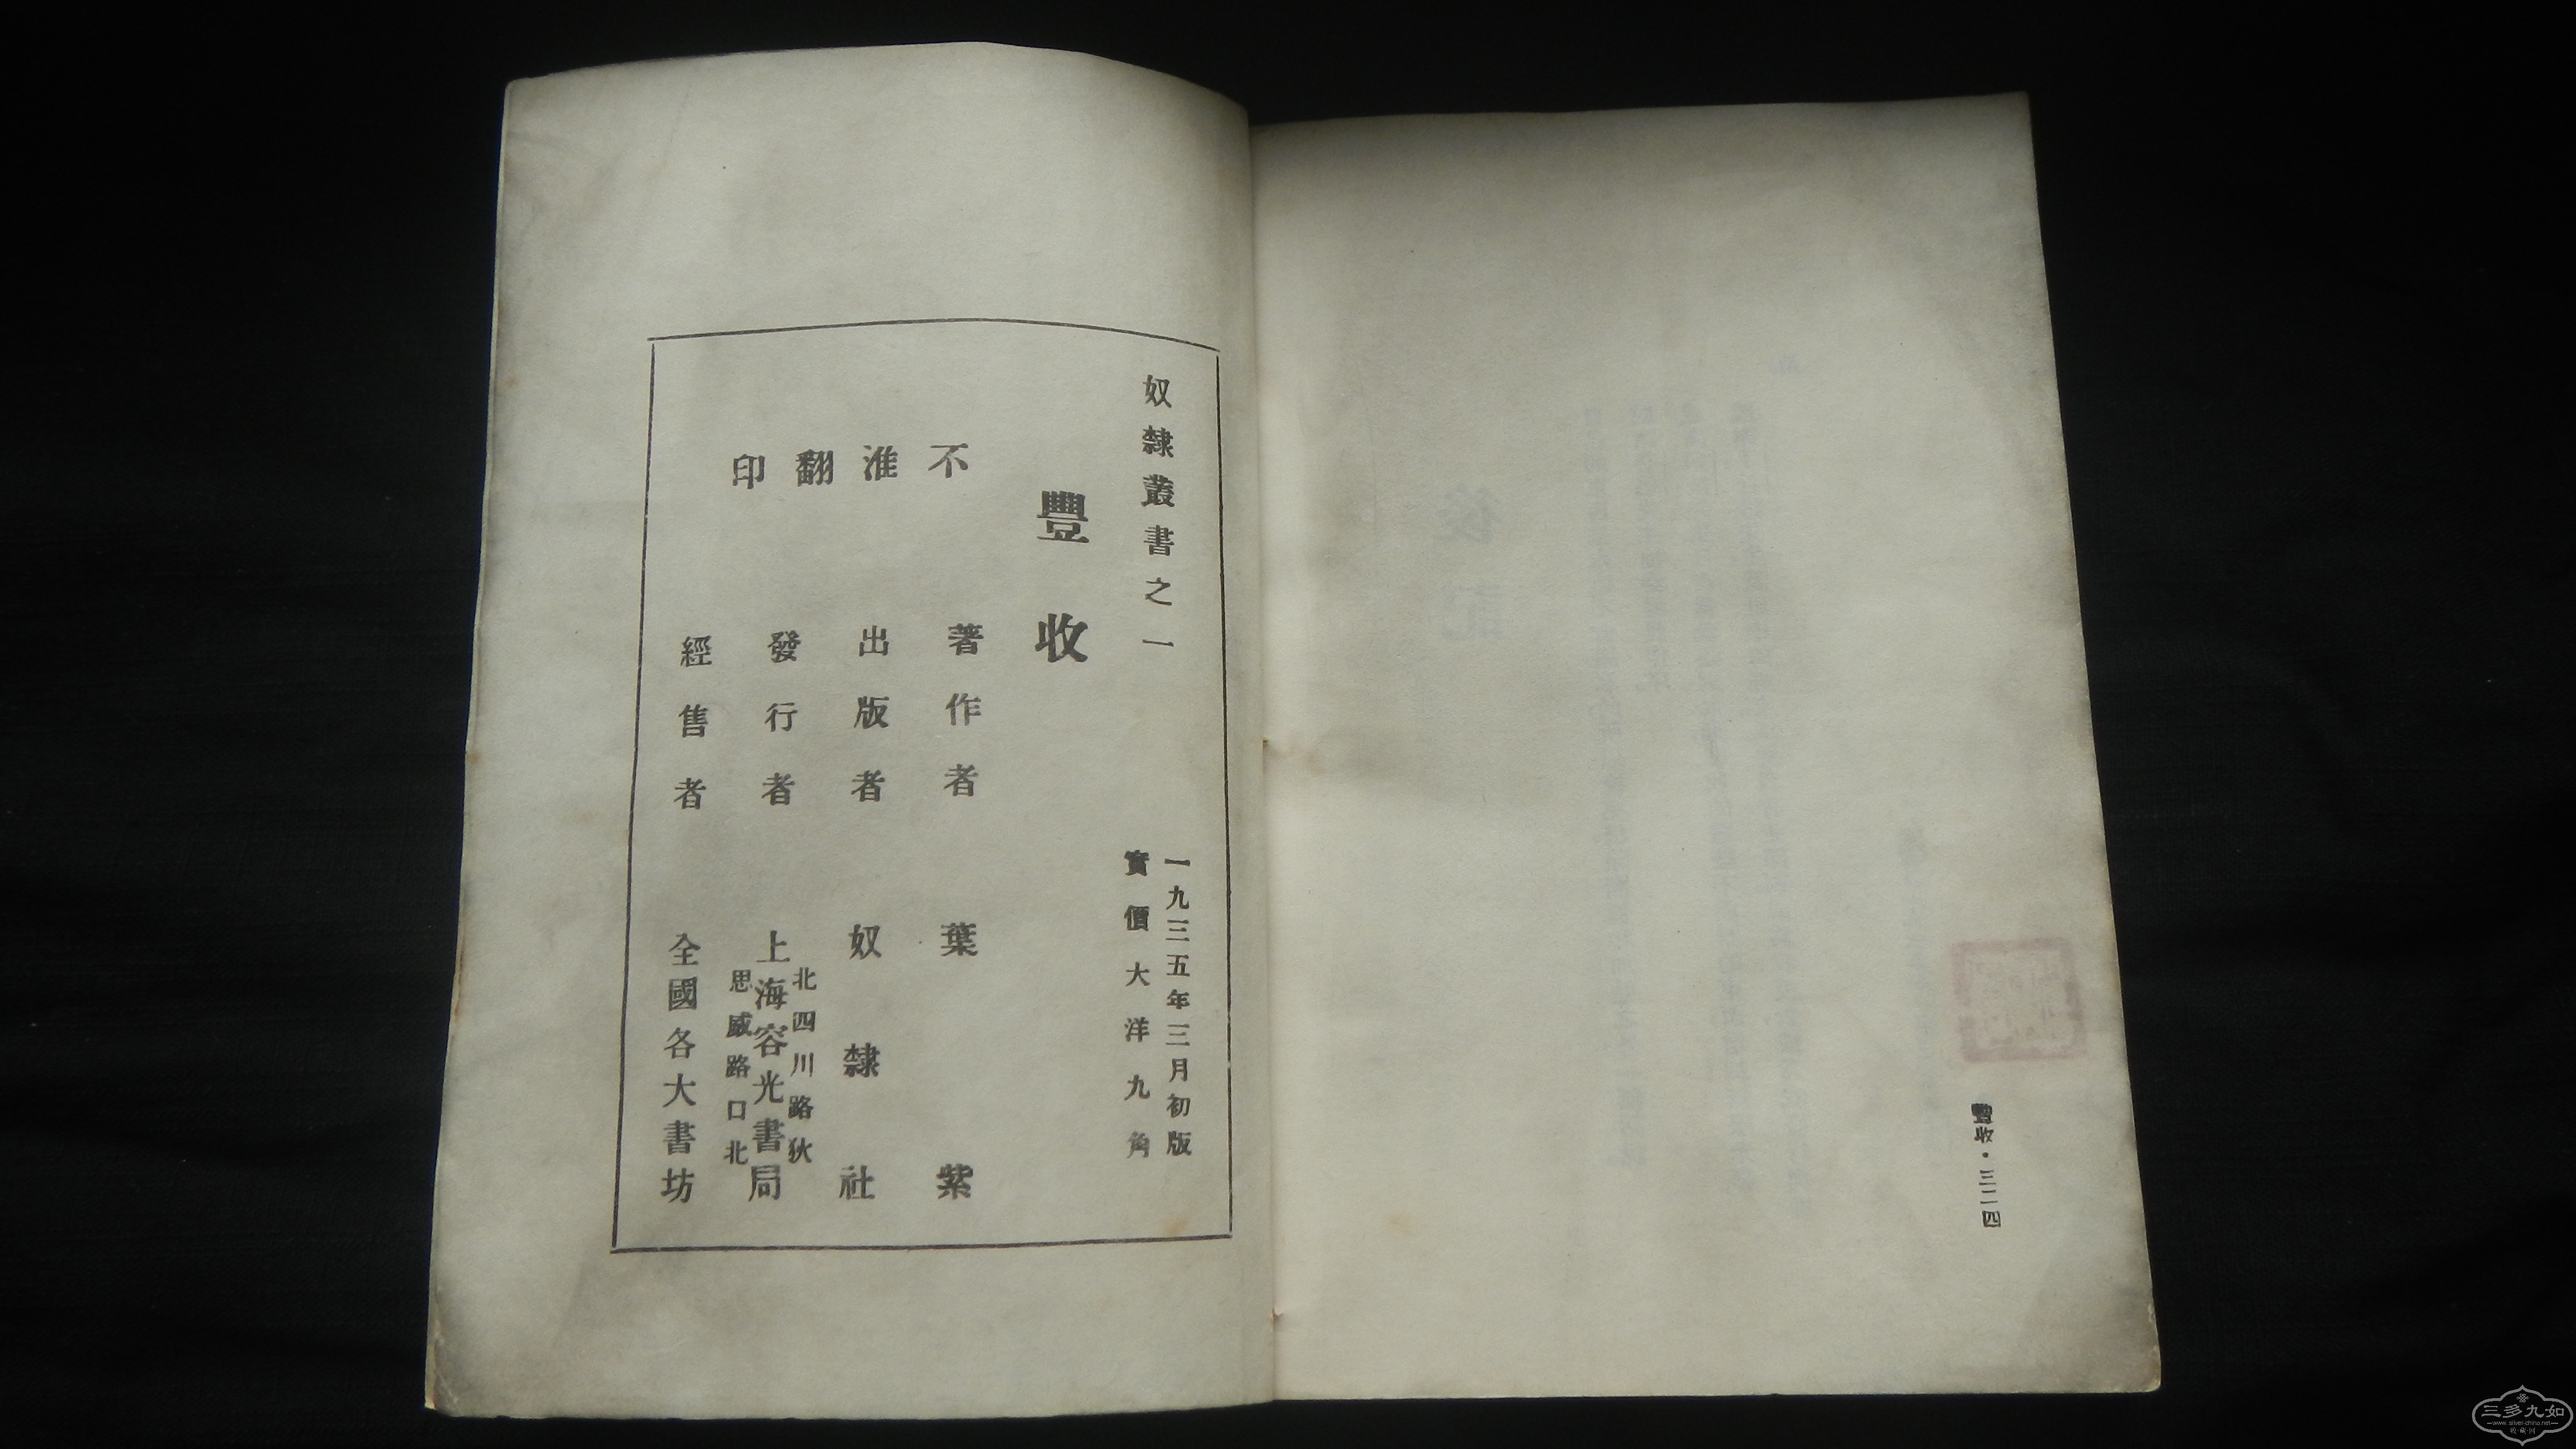 豐收・三二四
奴隸叢書之一
一九三五年三月初版
實價大洋九角
豐收
不准翻印
著作者 葉紫
出版者 奴隸社
發行者 上海容光書局
北四川路狄
思威路口北
經售者 全國各大書坊
三多九如
www.silver-china.net